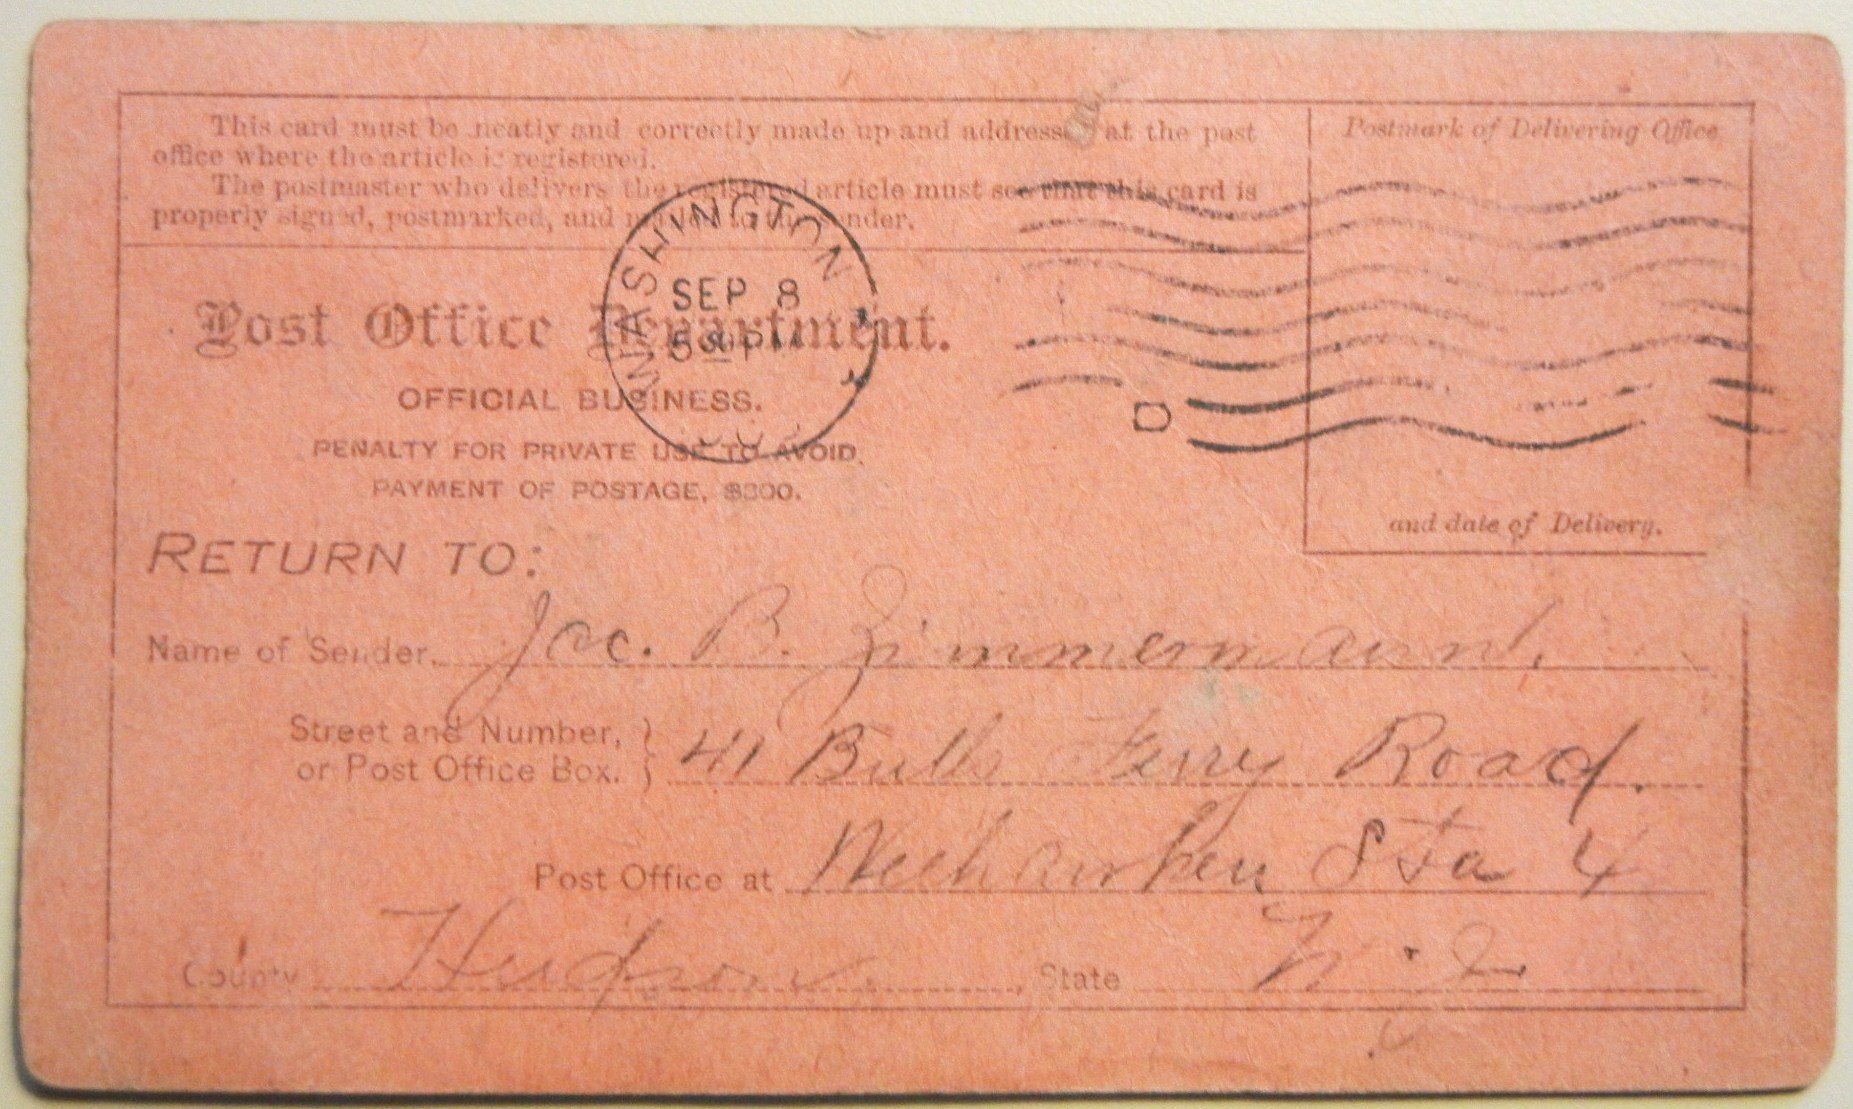 This card must be neatly and correctly made up and addressed at the post
office where the article is registered.
The postmaster who delivers the registered article must see that this card is
properly signed, postmarked, and mailed to the sender.
Postmark of Delivering Office
and date of Delivery.
WASHINGTON
SEP 8
5 30 PM
D
Post Office Department.
OFFICIAL BUSINESS.
PENALTY FOR PRIVATE USE TO AVOID
PAYMENT OF POSTAGE, $300.
RETURN TO:
Name of Sender. Jac. B. Zimmermann.
Street and Number,
or Post Office Box. } 41 Bulls Ferry Road.
Post Office at Weehawken Sta 4
County Hudson, State N. J.